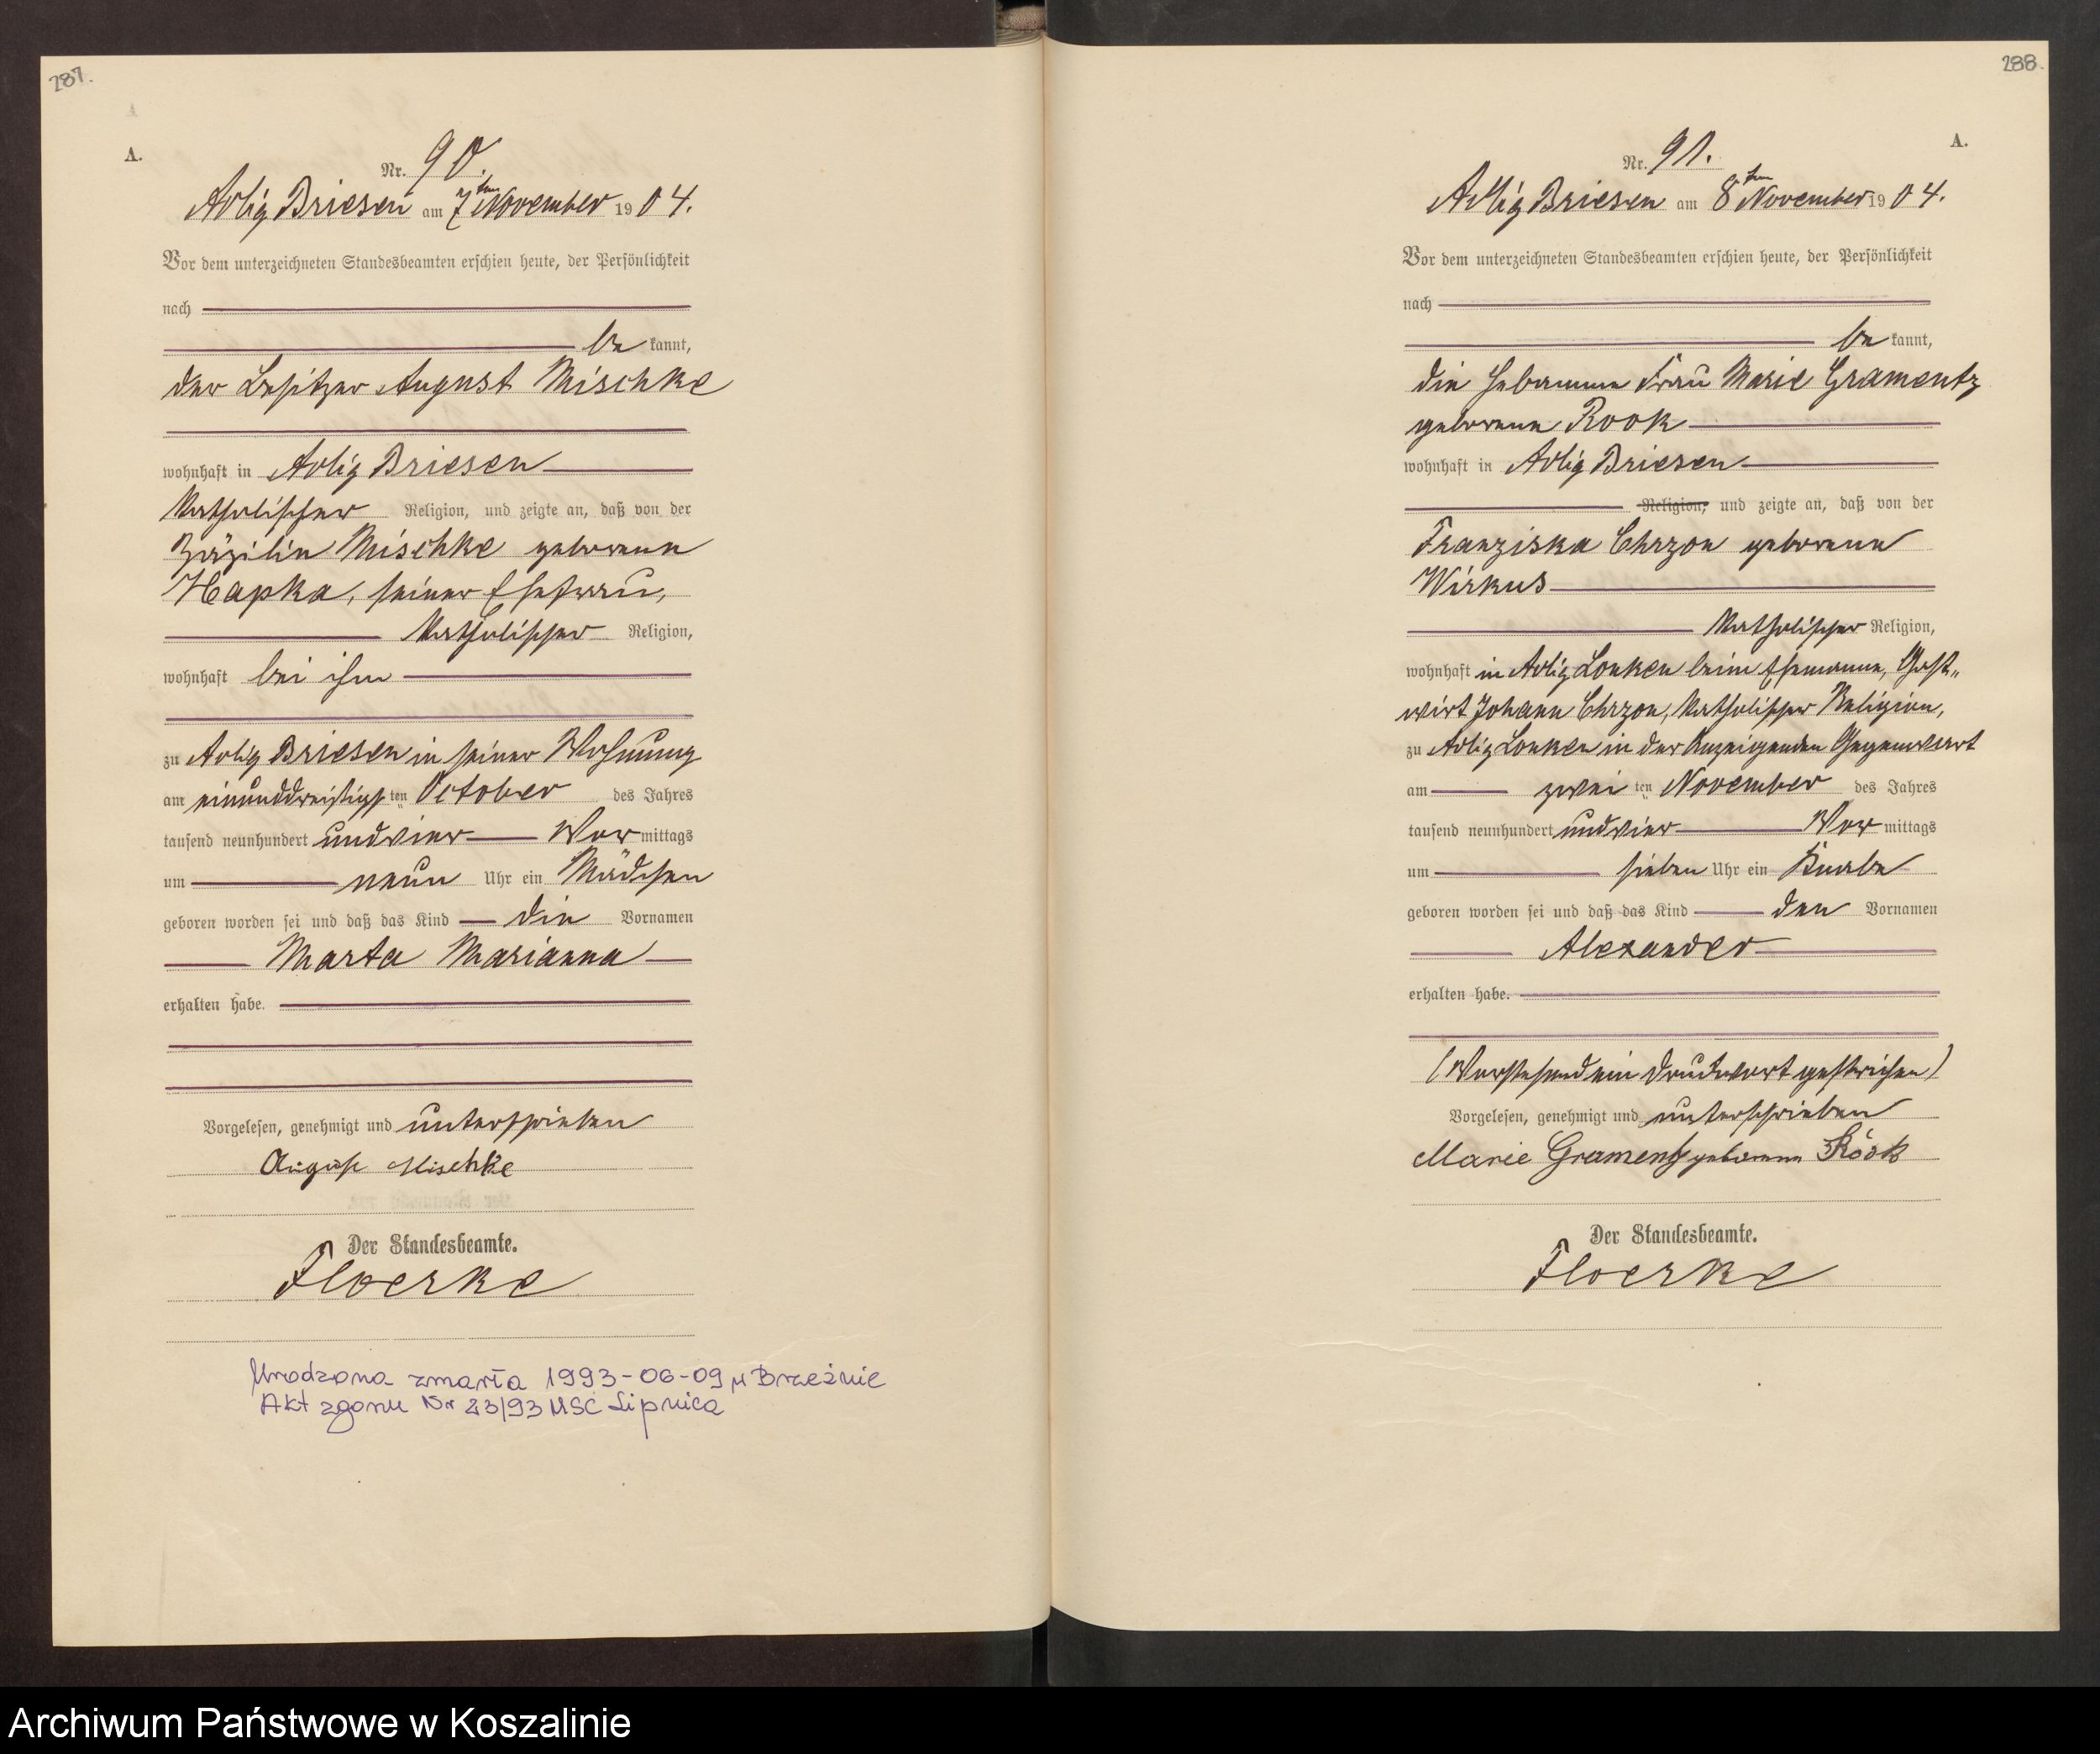 287.
A.
Nr. 90.
Adlig Briesen am 7ten November 1904.
Vor dem unterzeichneten Standesbeamten erschien heute, der Persönlichkeit
nach
be kannt,
der Besitzer August Mischke
wohnhaft in Adlig Briesen
katholischer Religion, und zeigte an, daß von der
Zäzilie Mischke geborene
Hapka, seiner Ehefrau,
katholischer Religion,
wohnhaft bei ihm
zu Adlig Briesen in seiner Wohnung
am einunddreißigsten October des Jahres
tausend neunhundert und vier Vor mittags
um neun Uhr ein Mädchen
geboren worden sei und daß das Kind die Vornamen
Marta Marianna
erhalten habe.
Vorgelesen, genehmigt und unterschrieben
August Mischke
Der Standesbeamte.
Floerke
Urodzona zmarła 1993-06-09 w Brzeźnie
Akt zgonu Nr 23/93 USC Lipnica
288.
A.
Nr. 91.
Adlig Briesen am 8ten November 1904.
Vor dem unterzeichneten Standesbeamten erschien heute, der Persönlichkeit
nach
be kannt,
die Hebamme Frau Marie Gramentz
geborene Rook
wohnhaft in Adlig Briesen
Religion, und zeigte an, daß von der
Franziska Chrzon geborene
Wirkus
katholischer Religion,
wohnhaft in Adlig Lonken beim Ehemanne, Gast„
wirt Johann Chrzon, katholischer Religion,
zu Adlig Lonken in der Anzeigenden Gegenwart
am zwei ten November des Jahres
tausend neunhundert und vier Vor mittags
um sieben Uhr ein Knabe
geboren worden sei und daß das Kind den Vornamen
Alexander
erhalten habe.
(Vorstehend ein Druckwort gestrichen)
Vorgelesen, genehmigt und unterschrieben
Marie Gramentz geborene Rook
Der Standesbeamte.
Floerke
Archiwum Państwowe w Koszalinie